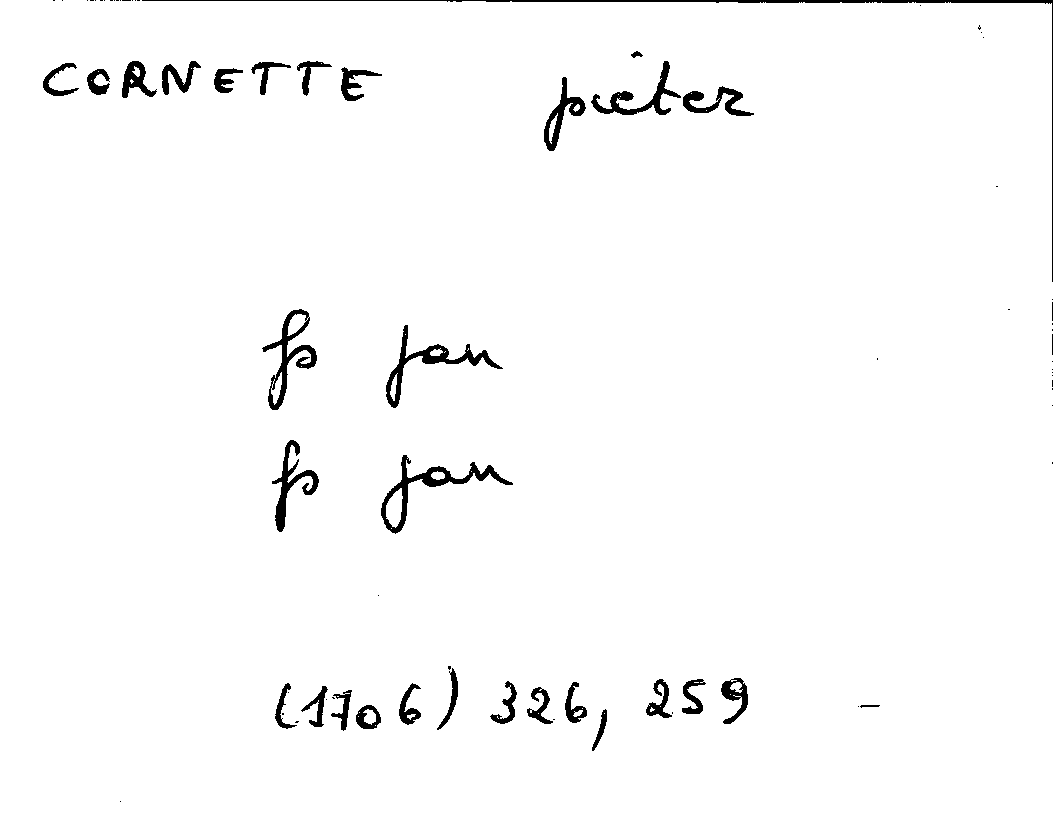 CORNETTE pieter
fs jan
fs jan
(1706) 326, 259 -